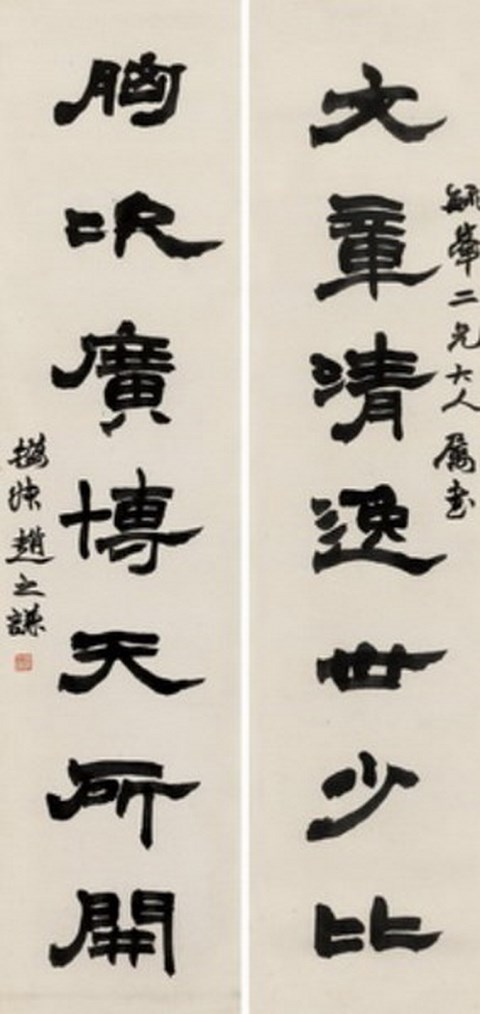 毓峯二兄大人屬書
文章清逸世少比
胸次廣博天所開
撝叔趙之謙